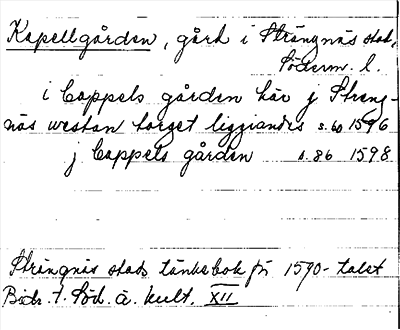 Kapellgården, gård i Strängnäs stad,
Söderm. l.
i Cappels gården här j Streng-
näs westan torget liggiandes s. 60 1596
j Cappels gården s. 86 1598
Strängnäs stads tänkebok från 1590-talet
Bidr. t. Söd. ä. kult. XII